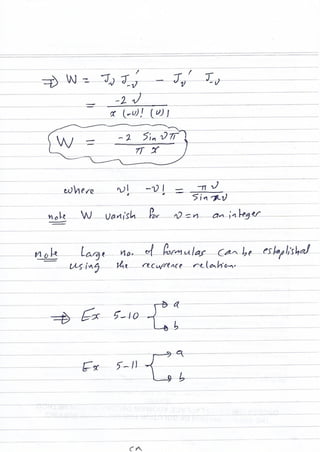 ⇒ W = J_ν J'_-ν − J_ν' J_-ν
= -2 ν / x (-ν)! (ν)!
W = -2 Sin νπ / π x
where ν! -ν! = π ν / Sin πν
note W vanish for ν = n an integer
note Large no. of formulas can be established
using the recurrence relation
⇒ Ex 5-10 → a
→ b
Ex 5-11 → a
→ b